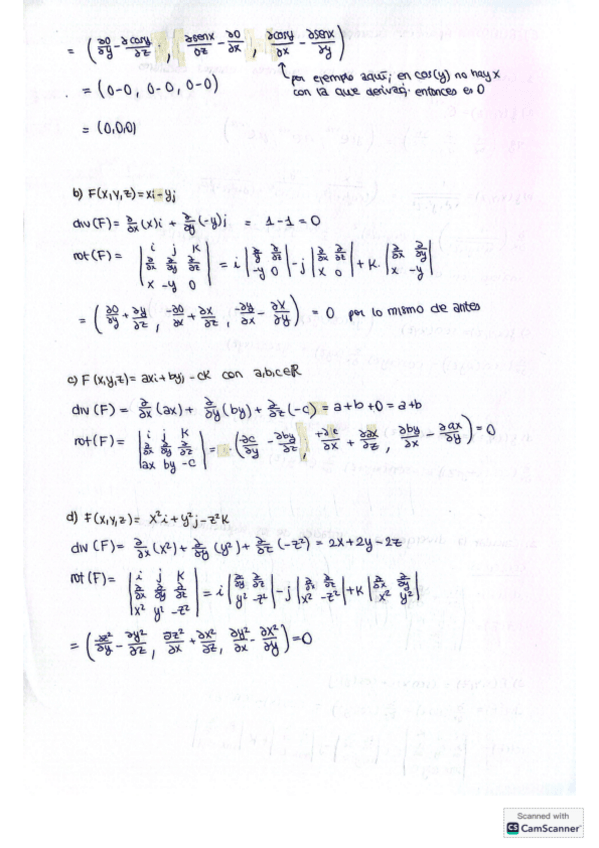 = (∂0/∂y - ∂cosy/∂z, ∂senx/∂z - ∂0/∂x, ∂cosy/∂x - ∂senx/∂y)
= (0-0, 0-0, 0-0)
por ejemplo aquí, en cos(y) no hay x
con la que derivar, entonces es 0
= (0,0,0)
b) F(x,y,z)=xi-yj
div(F)= ∂/∂x (x)i + ∂/∂y (-y)j = 1-1=0
rot(F)= | i j K ; ∂/∂x ∂/∂y ∂/∂z ; x -y 0 | = i | ∂/∂y ∂/∂z ; -y 0 | -j | ∂/∂x ∂/∂z ; x 0 | +K | ∂/∂x ∂/∂y ; x -y |
= (∂0/∂y + ∂y/∂z, -∂0/∂x + ∂x/∂z, -∂y/∂x - ∂x/∂y) = 0 por lo mismo de antes
c) F(x,y,z)= axi+byj-cK con a,b,c∈R
div(F) = ∂/∂x (ax)+ ∂/∂y (by)+ ∂/∂z (-c)=a+b+0=a+b
rot(F)= | i j K ; ∂/∂x ∂/∂y ∂/∂z ; ax by -c | = (-∂c/∂y - ∂by/∂z, +∂c/∂x + ∂ax/∂z, ∂by/∂x - ∂ax/∂y)=0
d) F(x,y,z)= x²i+y²j-z²K
div(F)= ∂/∂x (x²)+ ∂/∂y (y²)+ ∂/∂z (-z²)=2x+2y-2z
rot(F)= | i j K ; ∂/∂x ∂/∂y ∂/∂z ; x² y² -z² | = i | ∂/∂y ∂/∂z ; y² -z² | -j | ∂/∂x ∂/∂z ; x² -z² | +K | ∂/∂x ∂/∂y ; x² y² |
= (-∂z²/∂y - ∂y²/∂z, ∂z²/∂x + ∂x²/∂z, ∂y²/∂x - ∂x²/∂y)=0
Scanned with
CS CamScanner